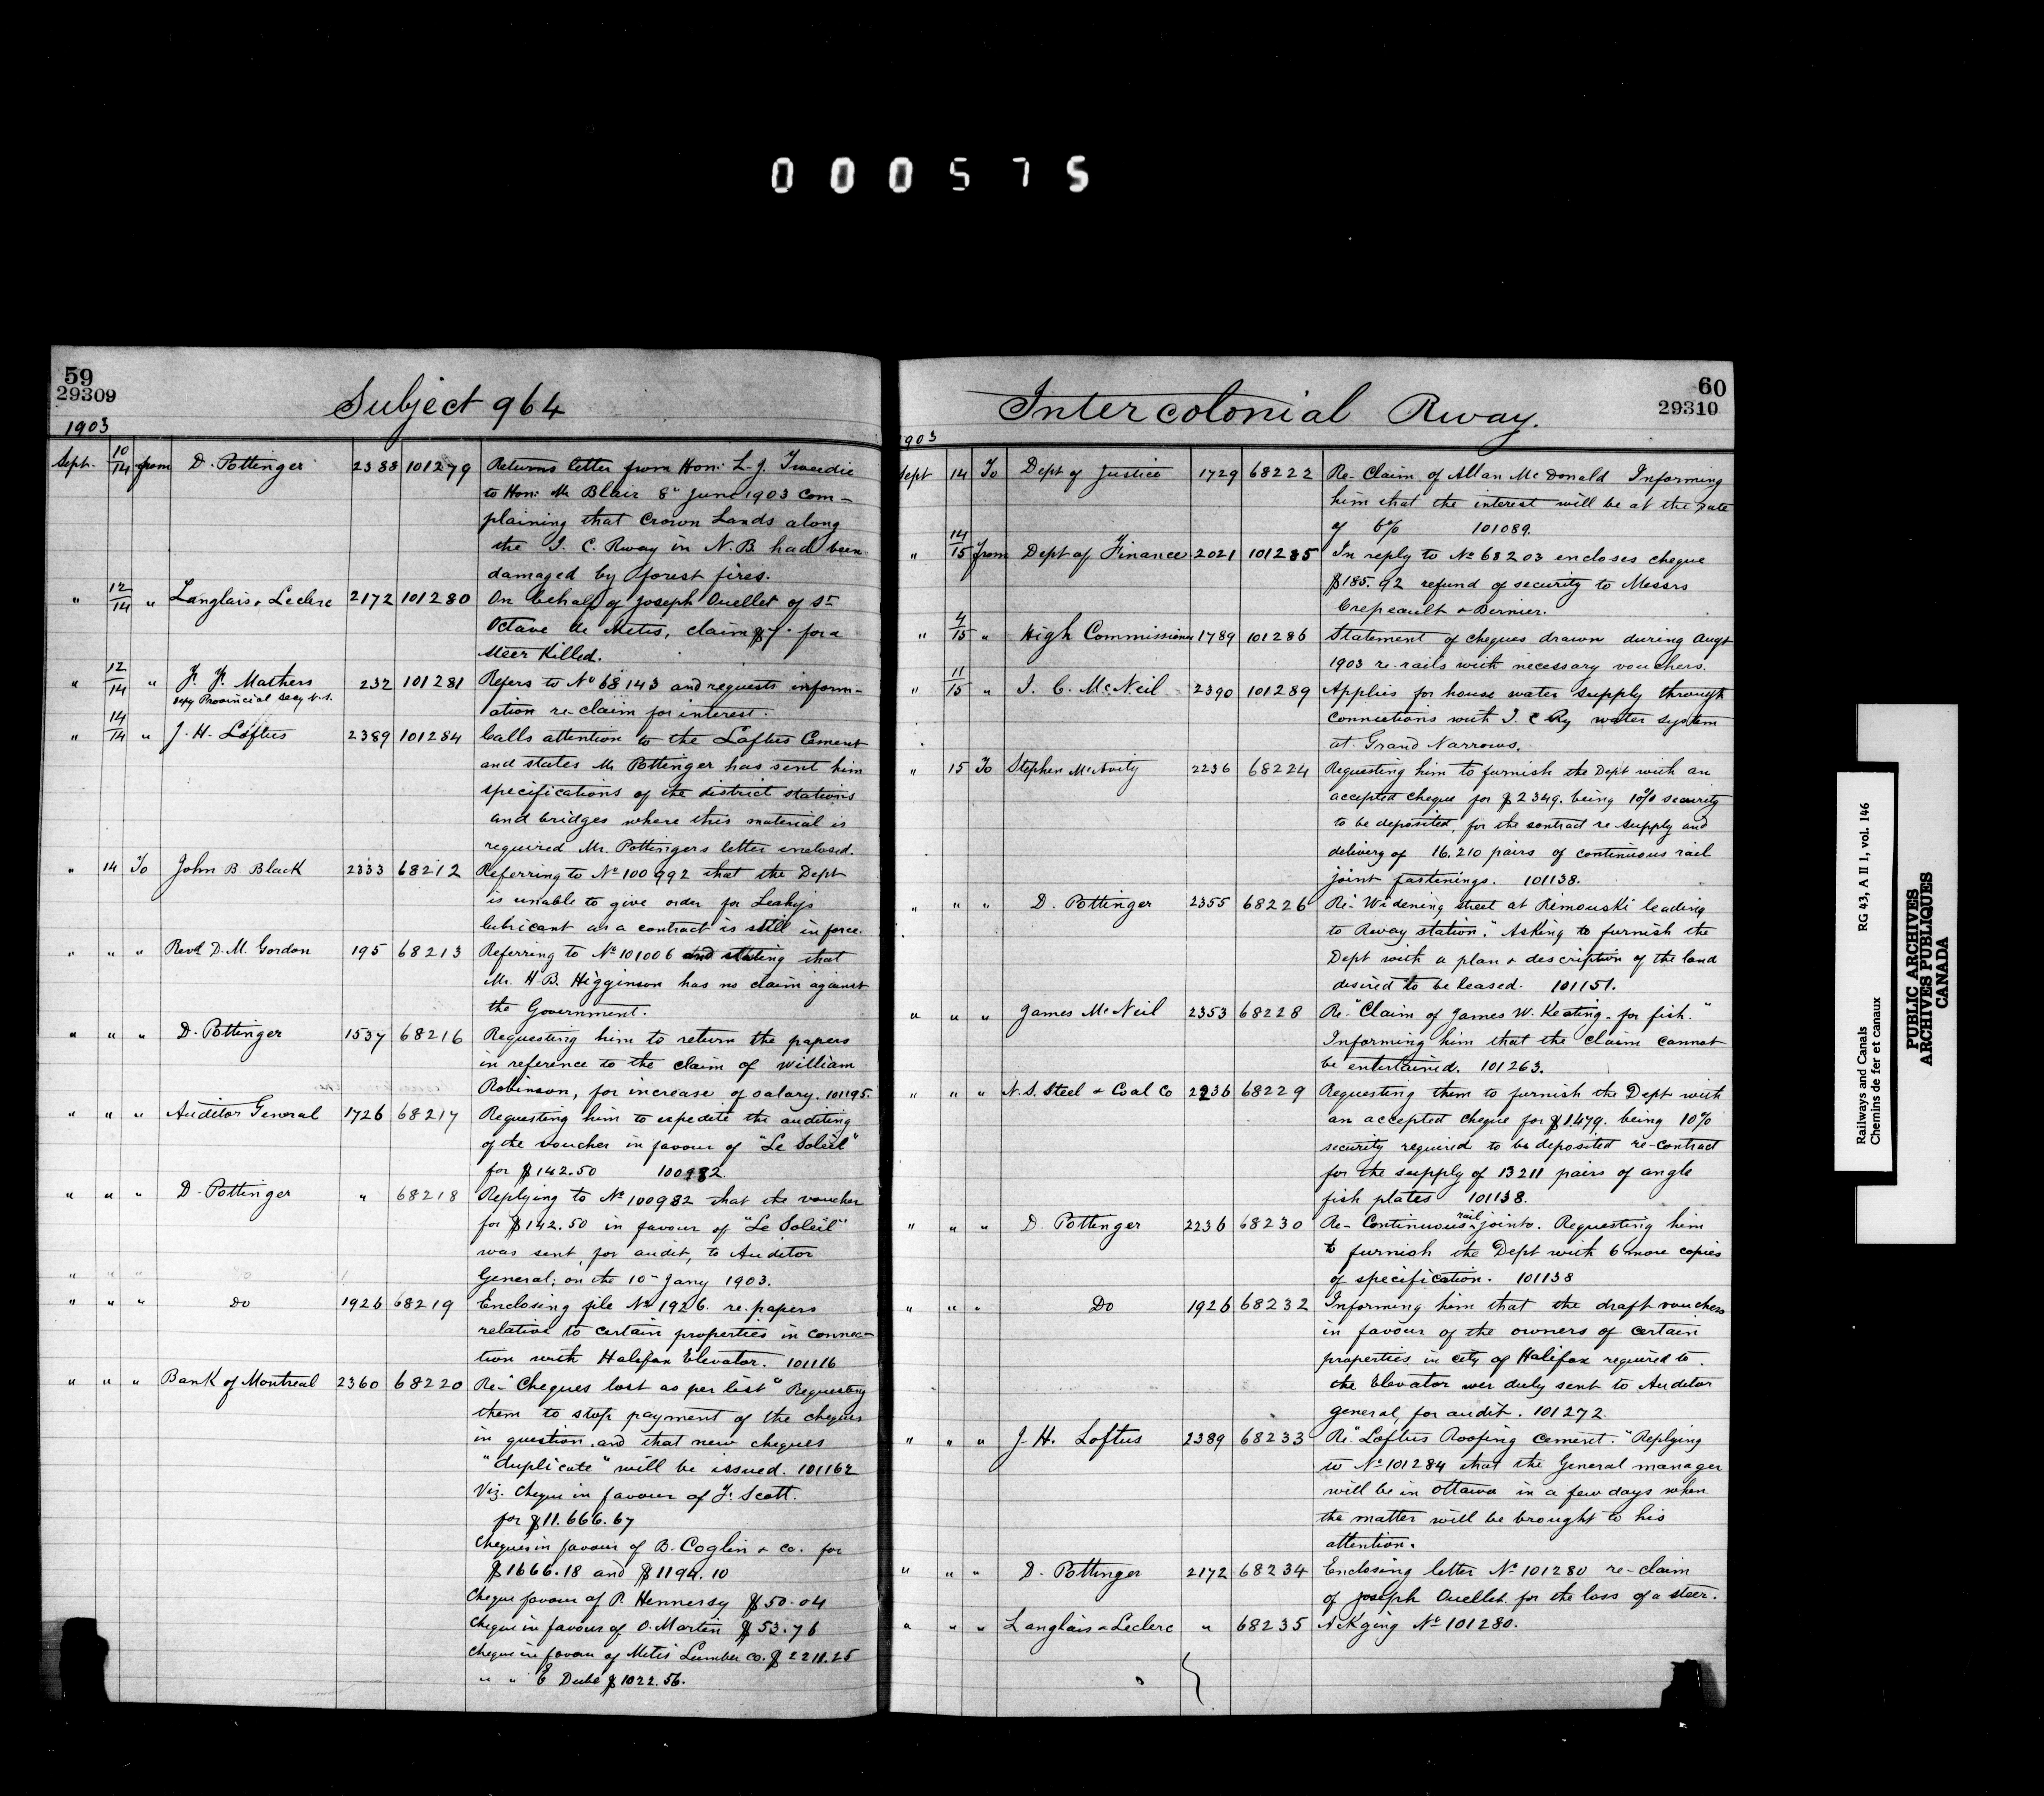 0 0 0 5 7 5
59
29309
Subject 964
1903
Sept. 10/14 from D. Pottinger 2388 101279 Returns letter from Hon: L. J. Tweedie
to Hon: Mr Blair 8" June 1903 com-
plaining that Crown Lands along
the I. C. Rway in N.B. had been
damaged by forest fires.
" 12/14 " Langlais & Leclerc 2172 101280 On behalf of Joseph Ouellet of St
Octave de Metis, claim $7. for a
steer killed.
" 12/14 " F. F. Mathers 232 101281 Refers to No 68143 and requests inform-
Depy Provincial Secy N.S. ation re-claim for interest.
" 14/14 " J. H. Loftus 2389 101284 Calls attention to the Loftus Cement
and states Mr Pottinger has sent him
specifications of the district stations
and bridges where this material is
required Mr. Pottingers letter enclosed.
" 14 To John B Black 2333 68212 Referring to No 100992 that the Dept
is unable to give order for Leahys
lubricant as a contract is still in force.
" " " Revd D. M. Gordon 195 68213 Referring to No 101006 and stating that
Mr. H. B. Higginson has no claim against
the Government.
" " " D. Pottinger 1537 68216 Requesting him to return the papers
in reference to the claim of William
Robinson, for increase of salary. 101195.
" " " Auditor General 1726 68217 Requesting him to expedite the auditing
of the voucher in favour of "Le Soleil"
for $142.50 100982
" " " D. Pottinger " 68218 Replying to No 100982 that the voucher
for $142.50 in favour of "Le Soleil"
was sent, for audit, to Auditor
General; on the 10" Jany 1903.
" " " Do 1926 68219 Enclosing file No 1926. re. papers
relative to certain properties in connec-
tion with Halifax Elevator. 101116
" " " Bank of Montreal 2360 68220 Re-"Cheques lost as per list" Requesting
them to stop payment of the cheques
in question. and that new cheques
"duplicate" will be issued. 101162
Viz. Cheque in favour of F. Scott.
for $11.666.67
Cheques in favour of B. Coglin & Co. for
$1666.18 and $1194.10
Cheque favour of P. Hennersy $50.04
Cheque in favour of O. Martin $53.76
Cheque in favour of Metis Lumber Co. $2211.25
" " E Dubé $1022.56.
60
29310
Intercolonial Rway.
1903
Sept 14 To Dept of Justice 1729 68222 Re-Claim of Allan McDonald Informing
him that the interest will be at the rate
of 6% 101089.
" 14/15 from Dept of Finance 2021 101285 In reply to No 68203 encloses cheque
$185.92 refund of security to Messrs
Crepeault & Bernier.
" 4/15 " High Commissioner 1789 101286 Statement of cheques drawn during Augt
1903 re-rails with necessary vouchers.
" 11/15 " I. C. McNeil 2390 101289 Applies for house water supply through
connections with I. C Ry water system
at Grand Narrows.
" 15 To Stephen McAvity 2236 68224 Requesting him to furnish the Dept with an
accepted cheque for $2349. being 10% security
to be deposited, for the contract re supply and
delivery of 16.210 pairs of continuous rail
joint fastenings. 101138.
" " " D. Pottinger 2355 68226 Re-"Widening street at Rimouski leading
to Rway station." Asking to furnish the
Dept with a plan & description of the land
desired to be leased. 101151.
" " " James McNeil 2353 68228 Re-"Claim of James W. Keating-for fish."
Informing him that the claim cannot
be entertained. 101263.
" " " N.S. Steel & Coal Co 2236 68229 Requesting them to furnish the Dept with
an accepted cheque for $1.479. being 10%
security required to be deposited re-contract
for the supply of 13211 pairs of angle
fish plates 101138.
" " " D. Pottinger 2236 68230 Re-Continuous rail joints. Requesting him
to furnish the Dept with 6 more copies
of specification. 101138
" " " Do 1926 68232 Informing him that the draft vouchers
in favour of the owners of certain
properties in city of Halifax required to.
the Elevator wer duly sent to Auditor
general, for audit. 101272.
" " " J. H. Loftus 2389 68233 Re"Loftus Roofing Cement." Replying
to No 101284 that the General manager
will be in Ottawa in a few days when
the matter will be brought to his
attention.
" " " D. Pottinger 2172 68234 Enclosing letter No 101280 re-claim
of Joseph Ouellet. for the loss of a steer.
" " " Langlais & Leclerc " 68235 Ackging No 101280.
Railways and Canals
Chemins de fer et canaux
RG 43, A II 1, vol. 146
PUBLIC ARCHIVES
ARCHIVES PUBLIQUES
CANADA